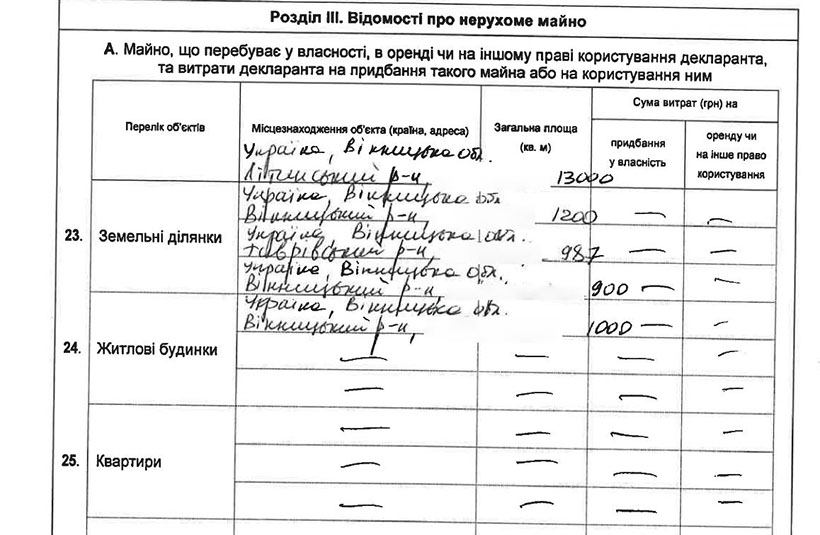 Розділ III. Відомості про нерухоме майно
А. Майно, що перебуває у власності, в оренді чи на іншому праві користування декларанта,
та витрати декларанта на придбання такого майна або на користування ним
Перелік об'єктів
Місцезнаходження об'єкта (країна, адреса)
Загальна площа
(кв. м)
Сума витрат (грн) на
придбання
у власність
оренду чи
на інше право
користування
Україна, Вінницька обл.
Літинський р-н, 13000
Україна, Вінницька обл.
Вінницький р-н, 1200 — —
23. Земельні ділянки
Україна, Вінницька обл.
р-н, 987 — —
Україна, Вінницька обл.
Вінницький р-н, 900 — —
Україна, Вінницька обл.
Вінницький р-н, 1000 — —
24. Житлові будинки
— — — —
— — — —
25. Квартири
— — — —
— — — —
— — — —